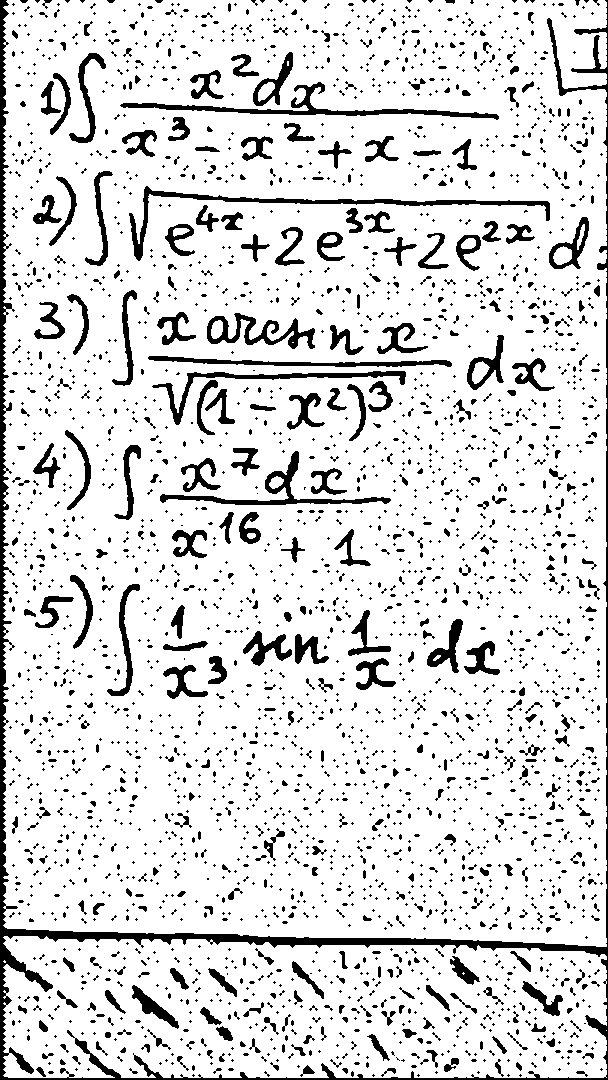 I
1) ∫ x²dx / (x³ - x² + x - 1)
2) ∫ √(e^{4x} + 2e^{3x} + 2e^{2x}) dx
3) ∫ x arcsin x / √((1 - x²)³) dx
4) ∫ x⁷dx / (x¹⁶ + 1)
5) ∫ 1/x³ sin 1/x dx